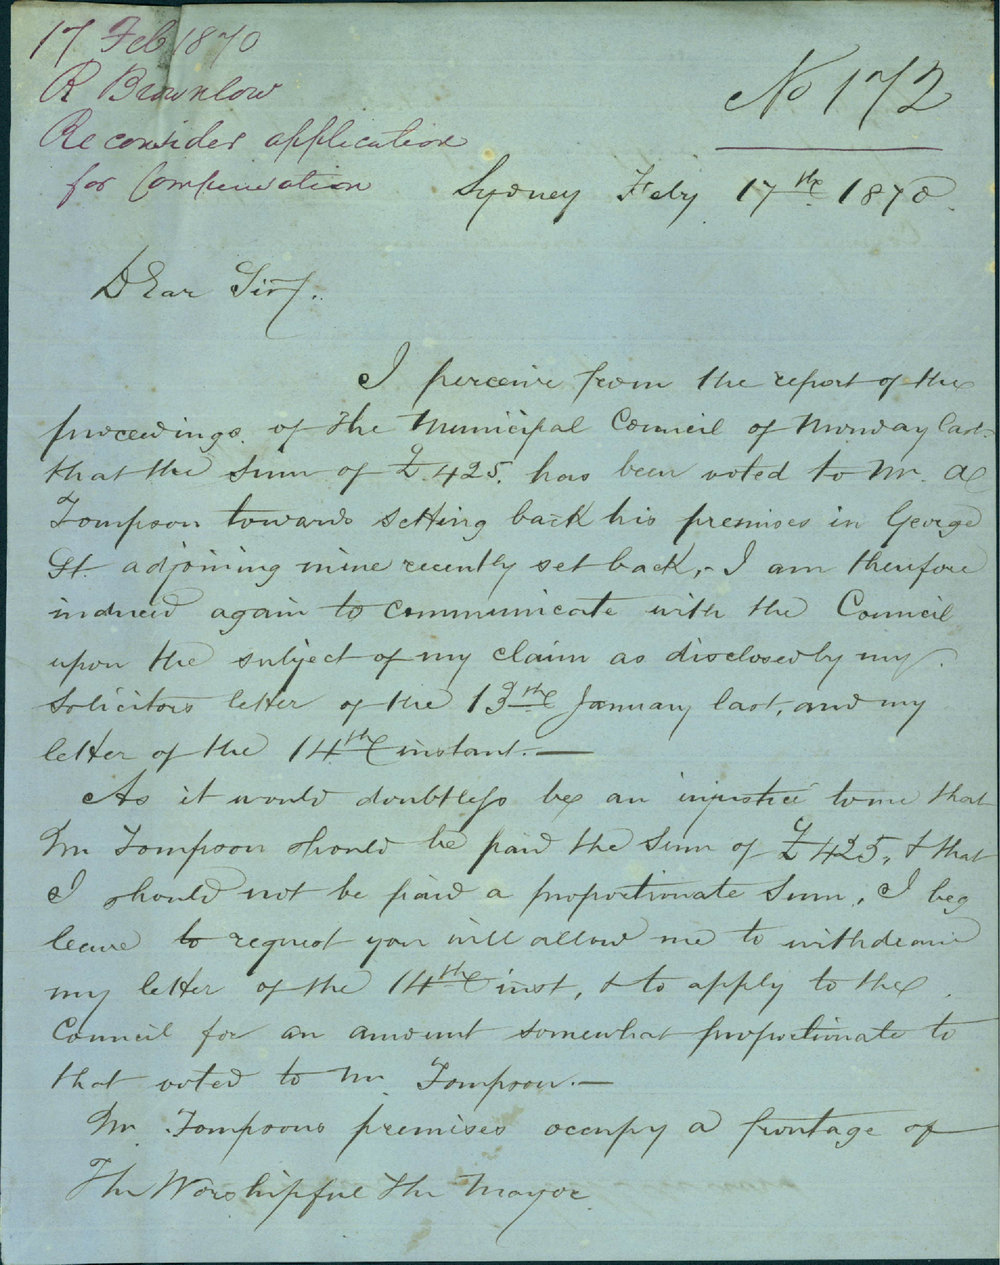 17 Feb 1870
R Brownlow
Reconsider application
for Compensation
No 172
Sydney Feby 17th 1870.
Dear Sir/.
I perceive from the report of the
proceedings of the Municipal Council of Monday last
that the sum of £425. has been voted to Mr. A
Tompson towards setting back his premises in George
St. adjoining mine recently set back, - I am therefore
induced again to communicate with the Council
upon the subject of my claim as disclosed by my
Solicitors letter of the 13th January last, and my
letter of the 14th instant. —
As it would doubtless be an injustice to me that
Mr Tompson should be paid the sum of £425, & that
I should not be paid a proportionate Sum, I beg
leave to request you will allow me to withdraw
my letter of the 14th inst, & to apply to the
Council for an amount somewhat proportionate to
that voted to Mr Tompson. —
Mr. Tompsons premises occupy a frontage of
The Worshipful The Mayor